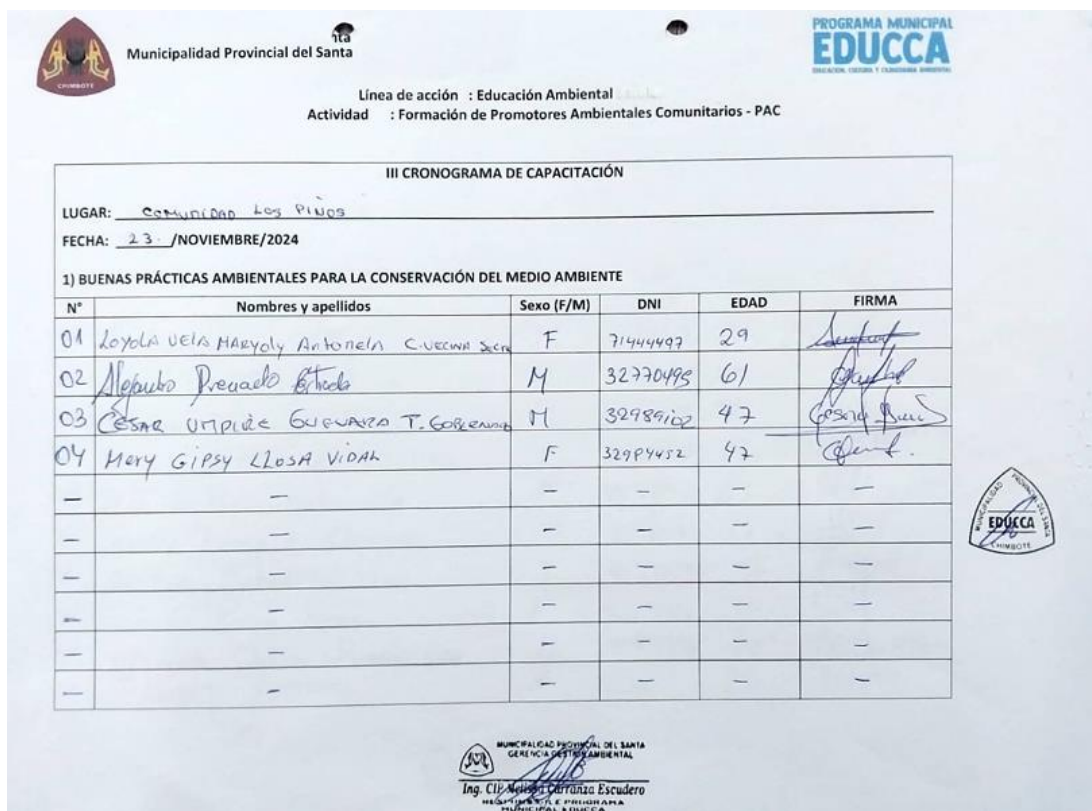 CHIMBOTE
Municipalidad Provincial del Santa
PROGRAMA MUNICIPAL
EDUCCA
EDUCACIÓN, CULTURA Y CIUDADANÍA AMBIENTAL
Línea de acción : Educación Ambiental
Actividad : Formación de Promotores Ambientales Comunitarios - PAC
III CRONOGRAMA DE CAPACITACIÓN
LUGAR: COMUNIDAD LOS PINOS
FECHA: 23. /NOVIEMBRE/2024
1) BUENAS PRÁCTICAS AMBIENTALES PARA LA CONSERVACIÓN DEL MEDIO AMBIENTE
N° Nombres y apellidos Sexo (F/M) DNI EDAD FIRMA
01 Loyola Vela Maryoly Antonela C. VECINA Secre F 71444497 29
02 Alejandro M 32770495 61
03 CÉSAR UMPIRE GUEVARA M 47
04 Mery GIPSY LLOSA VIDAL F 47
— — — — — —
— — — — — —
— — — — — —
— — — — — —
— — — — — —
— — — — — —
MUNICIPALIDAD PROVINCIAL DEL SANTA
EDUCCA
CHIMBOTE
MUNICIPALIDAD PROVINCIAL DEL SANTA
GERENCIA GESTIÓN AMBIENTAL
Ing. CIP Melissa Carranza Escudero
RESPONSABLE PROGRAMA
MUNICIPAL EDUCCA